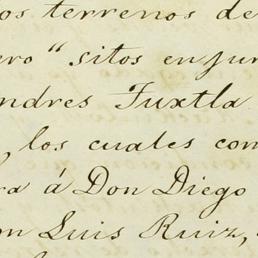 os terrenos de
ro" sitos en jur
ndres Tuxtla
, los cuales con
ra á Don Diego
on Luis Ruiz,